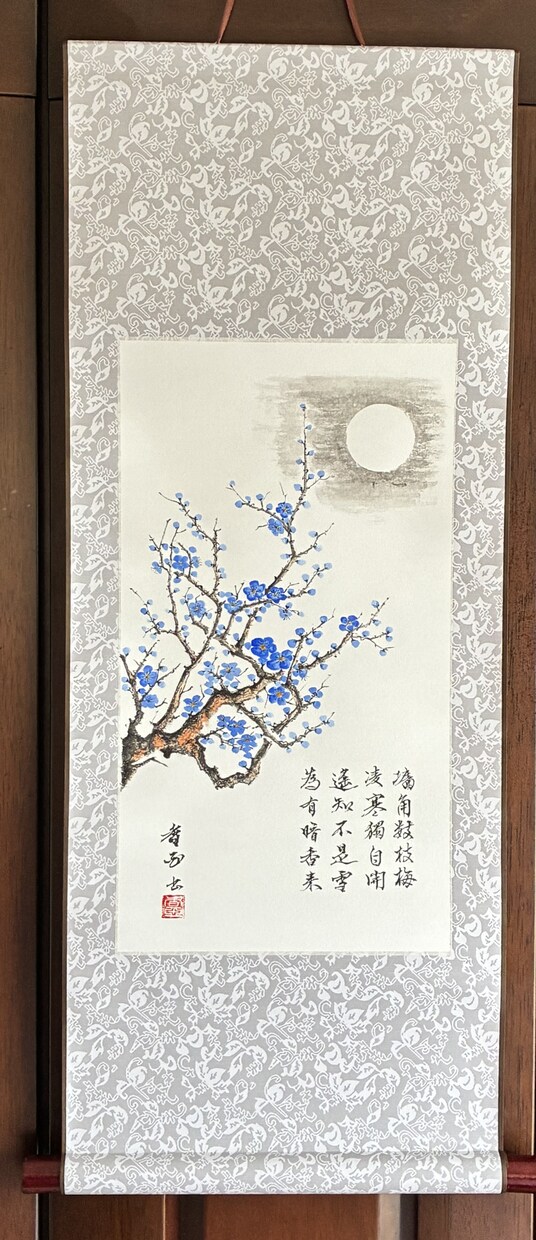 墻角數枝梅
凌寒獨自開
遙知不是雪
為有暗香来